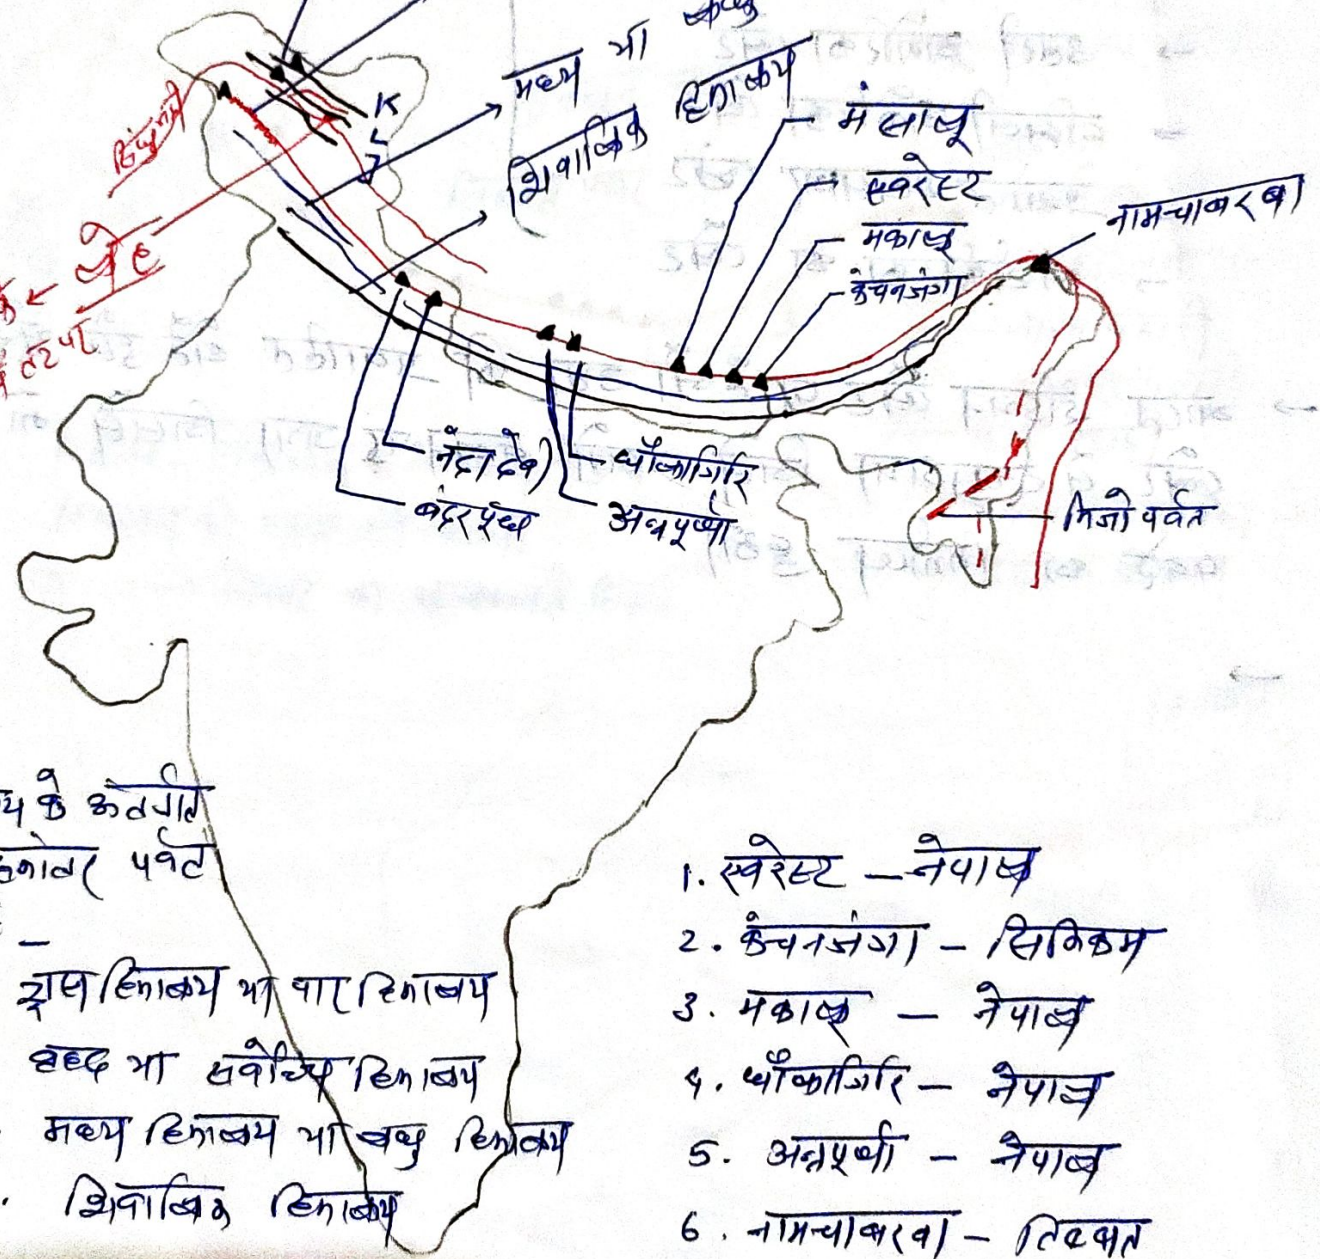 मध्य या लघु
हिमालय
शिवालिक
K
L
J
सिंधु नदी
लेह
तट पर
मंसालू
एवरेस्ट
मकालू
कंचनजंगा
नामचाबरबा
नंदादेवी
बंदरपूंछ
धौलागिरि
अन्नपूर्णा
मिजो पर्वत
य के अंतर्गत
पर्वत
–
ट्रांस हिमालय या पार हिमालय
वृहद या सर्वोच्च हिमालय
मध्य हिमालय या लघु हिमालय
शिवालिक हिमालय
1. एवरेस्ट – नेपाल
2. कंचनजंगा – सिक्किम
3. मकालू – नेपाल
4. धौलागिरि – नेपाल
5. अन्नपूर्णा – नेपाल
6. नामचाबरवा – तिब्बत